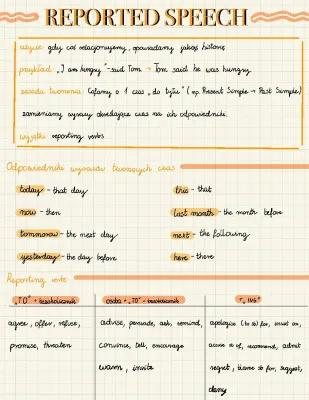 REPORTED SPEECH
użycie: gdy coś relacjonujemy, opowiadamy jakąś historię
przykład: „I am hungry" - said Tom → Tom said he was hungry.
zasada tworzenia: Cofamy o 1 czas „do tyłu" (np. Present Simple → Past Simple)
zamieniamy wyrazy określające czas na ich odpowiedniki.
wyjątki: reporting verbs
Odpowiedniki wyrazów tworzących czas
today - that day
this - that
now - then
last month - the month before
tommorow - the next day
next - the following
yesterday - the day before
here - there
Reporting verbs
„TO" + bezokolicznik
osoba + „TO" + bezokolicznik
+ „ING"
agree, offer, refuse,
promise, threaten
advise, persuade, ask, remind,
convince, tell, encourage
warn, invite
apologise (to sb) for, insist on,
accuse sb of, recommend, admit
regret, blame sb for, suggest,
deny